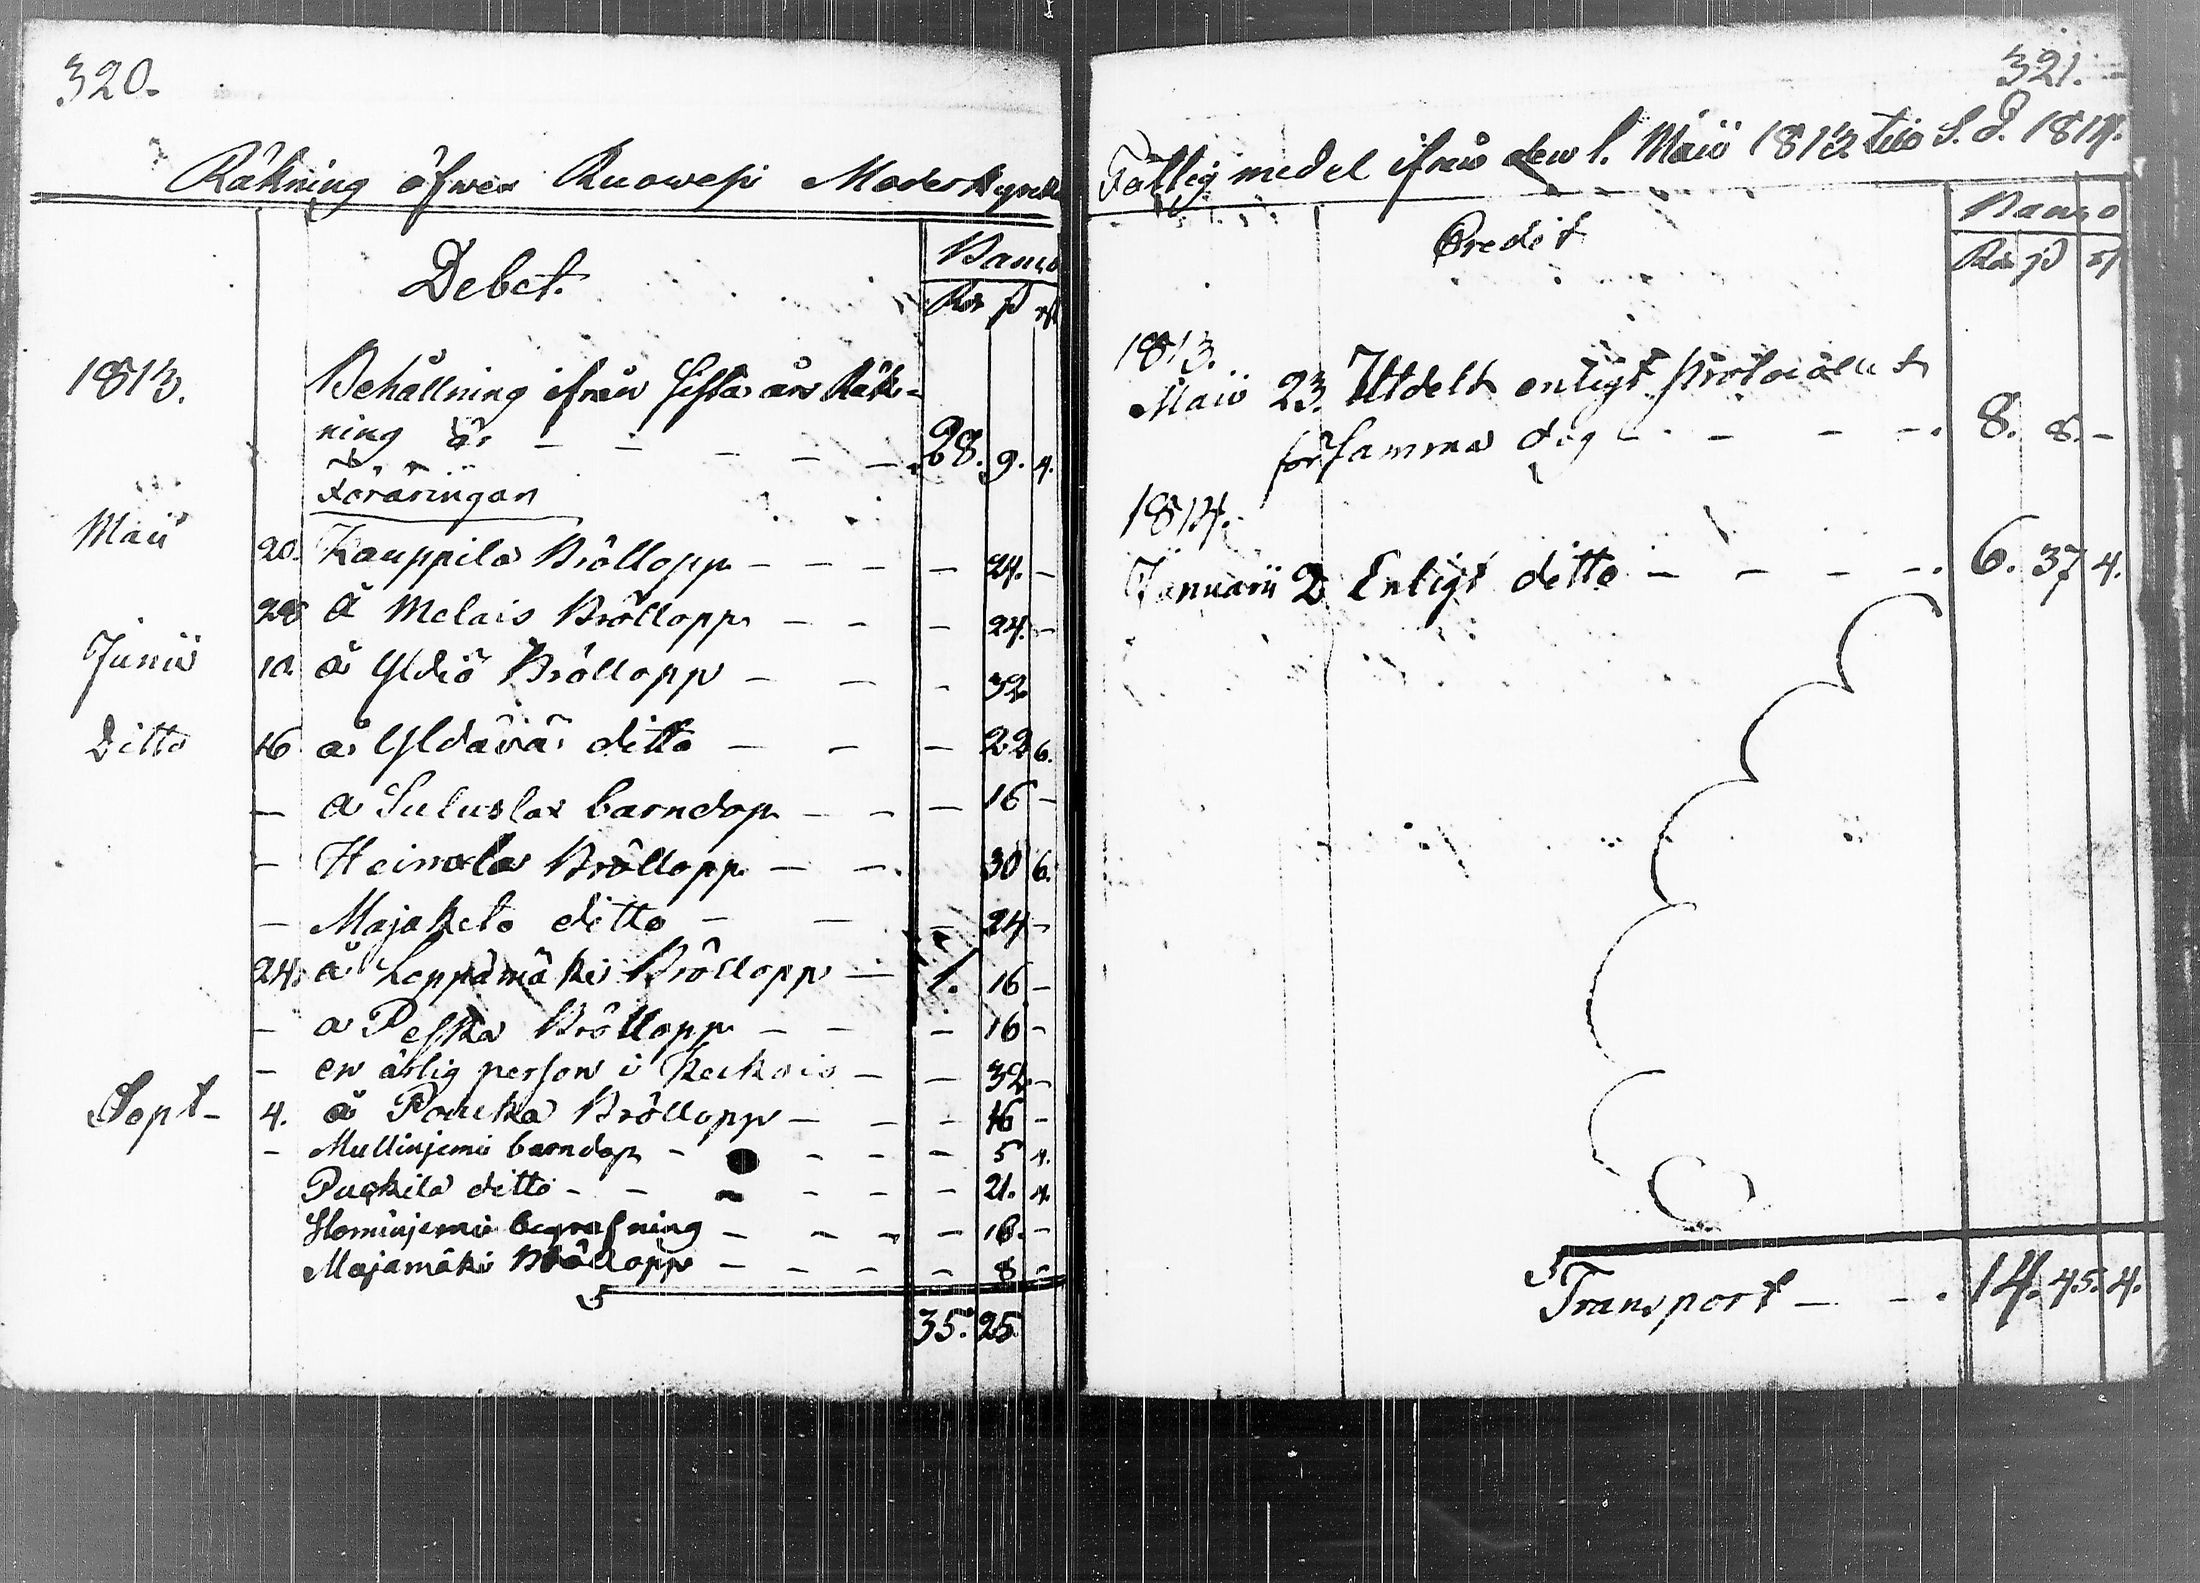 320.
Räkning öfwer Ruowesi Moderkyrkl
Debet.
Banco
Rdr ß rst
1813.
Behållning ifrån sista års Räk-
ning är — — — — — 28. 9. 4.
Föräringar
Maii 20. Kauppila Bröllopp — — — — 24. —
28 å Melais Bröllopp — — — 24. —
Junii 10. å Ylöiö Bröllopp — — - 32
Ditto 16 å Yldävä ditto — — — 22 6.
— a Suluslax barndop — — — 16 —
— Heimola Bröllopp — — 30 6.
— Majaketo ditto — — — 24 —
24. å Leppämäki Bröllopp — 1. 16 —
— a Peska Bröllopp — — — 16 —
— en ärlig person i — — 32 —
Sept — 4. å Poucka Bröllopp — — - 16 —
— Mullinjemi barndop — — — — 5 4.
Puskila ditto — — — — — — 21. 4.
begrafning — — — — 16. —
Majamäki Bröllopp — — — — — 8 —
35. 25.
321.
Fattig medel ifrån den 1. Maii 1813 till s. d. 1814.
Credit
Banco
Rdr ß rst
1813.
Maii 23. Utdelt enligt Protocollet
för samma dag — - — — —. 8. 8. —
1814.
Januarii 2 Enligt ditto — — — —. 6. 37 4.
Transport — — . 14. 45. 4.